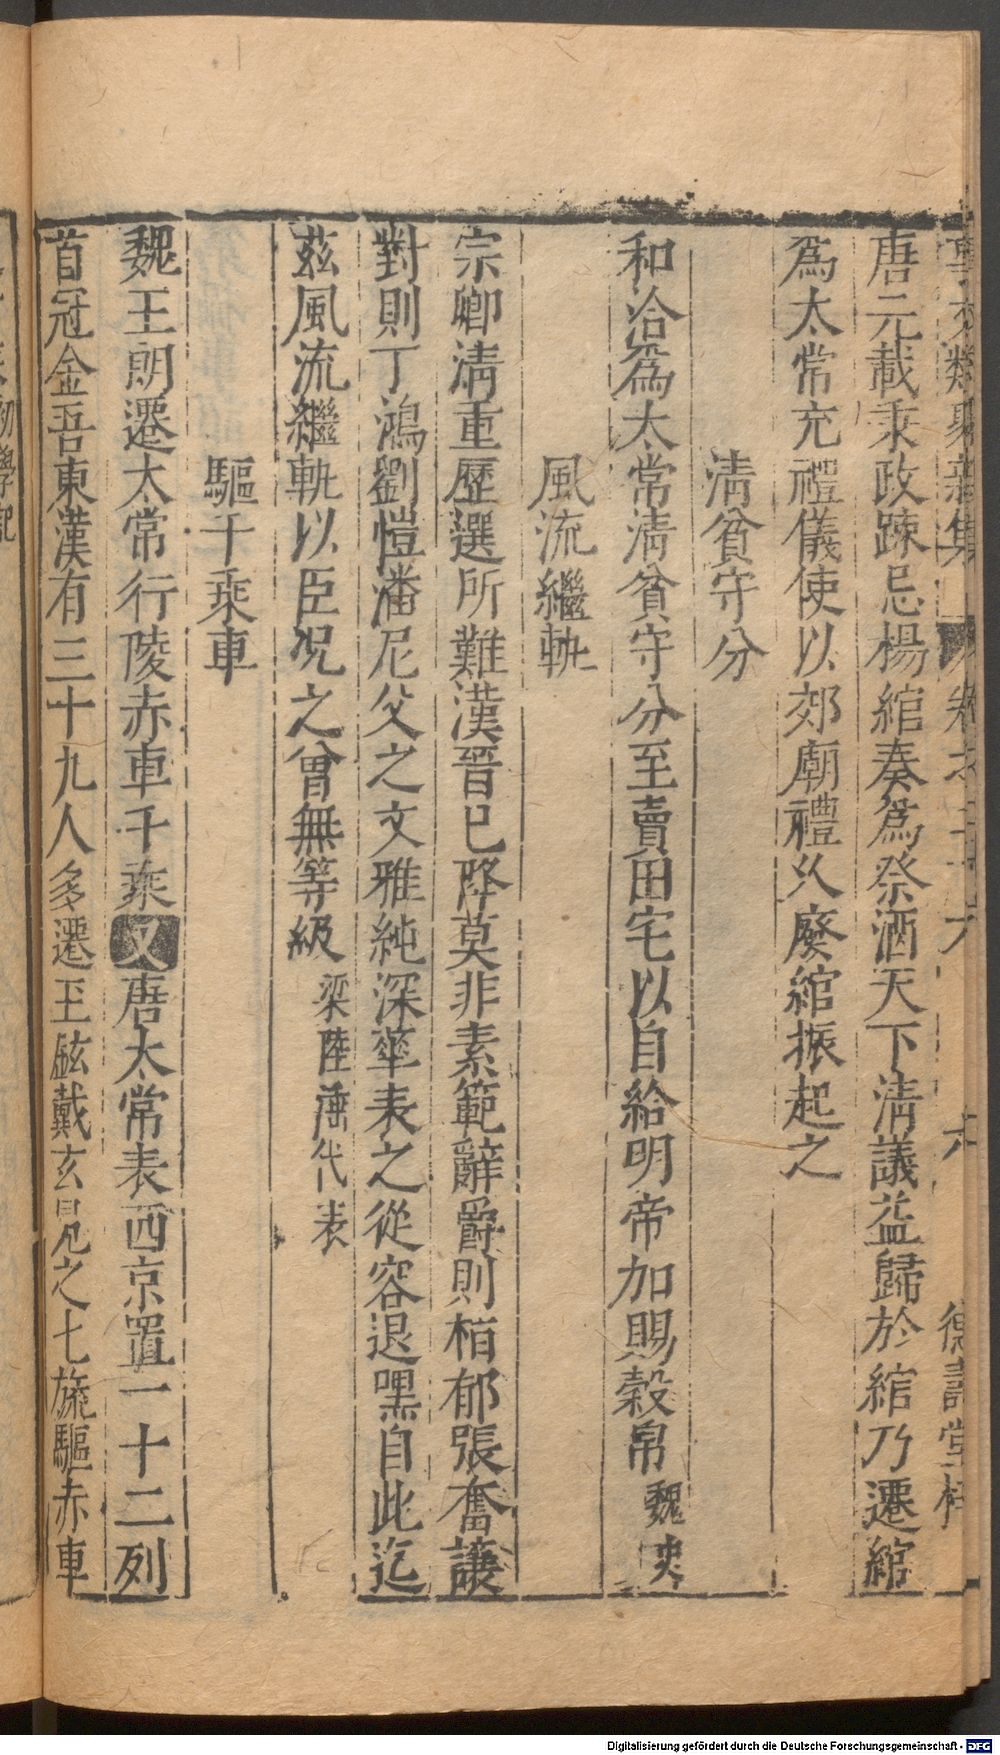 事文類聚新集 卷之二十六 六 德壽堂梓
唐元載秉政踈忌楊綰奏爲祭酒天下清議益歸於綰乃遷綰
爲太常充禮儀使以郊廟禮久廢綰振起之
清貧守分
和洽爲太常清貧守分至賣田宅以自給明帝加賜穀帛魏史
風流繼軌
宗卿清重歷選所難漢晉已降莫非素範辭爵則栢郁張奮讓
對則丁鴻劉愷潘尼父之文雅純深華表之從容退嘿自此迄
茲風流繼軌以臣况之曾無等級梁陸倕代表
驅千乘車
魏王朗遷太常行陵赤車千乘又唐太常表西京置一十二列
首冠金吾東漢有三十九人多遷玉鉉戴玄冕之七旒驅赤車
初學記
Digitalisierung gefördert durch die Deutsche Forschungsgemeinschaft - DFG